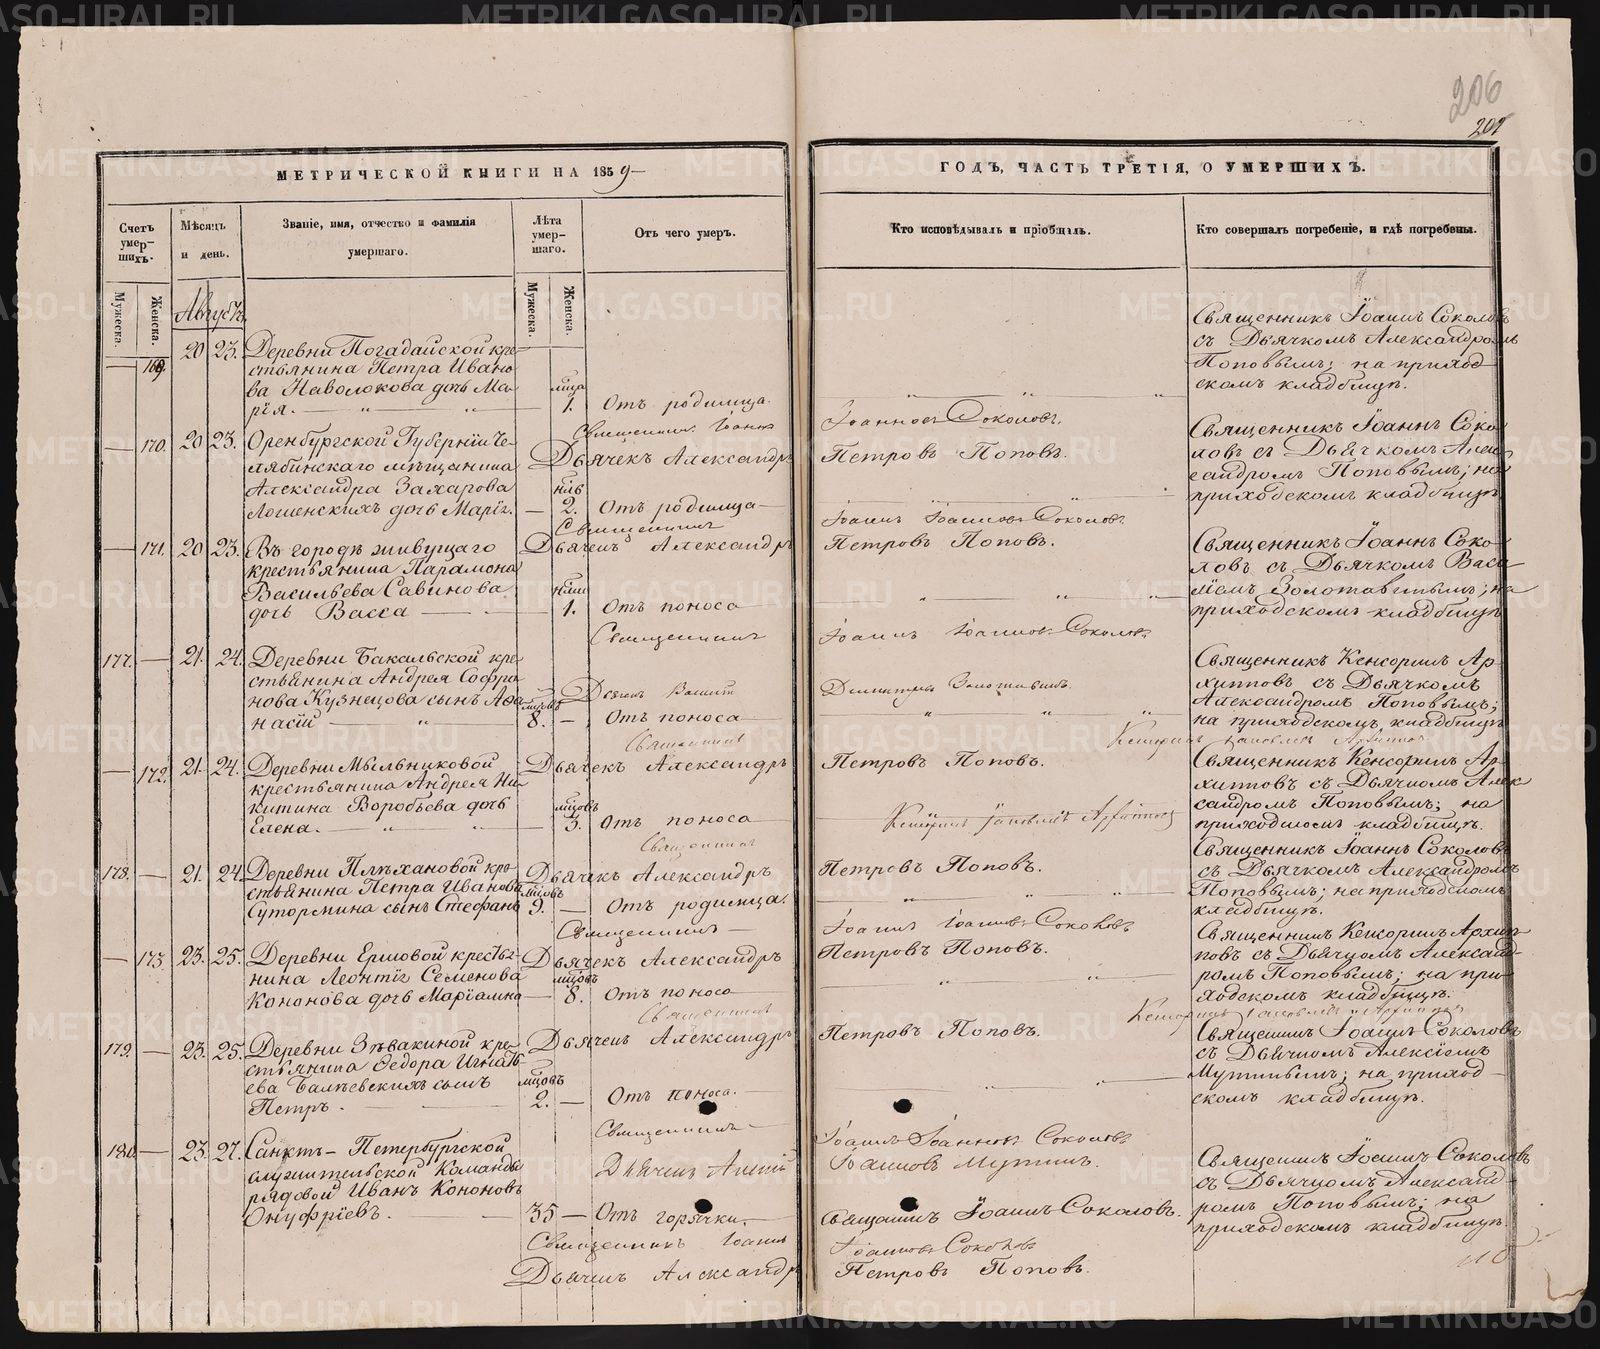 206
201
МЕТРИЧЕСКОЙ КНИГИ НА 1859
ГОДЪ, ЧАСТЬ ТРЕТІЯ, О УМЕРШИХЪ.
Счетъ умер-шихъ.
Мѣсяцъ и день.
Званіе, имя, отчество и фамилія умершаго.
Лѣта умер-шаго.
Отъ чего умеръ.
Кто исповѣдывалъ и пріобщалъ.
Кто совершалъ погребеніе, и гдѣ погребены.
Мужеска.
Женска.
Мужеска.
Женска.
Августъ
169. 20 23. Деревни Погадайской кре-
стьянина Петра Ивано-
ва Наволокова дочь Ма-
рія. 1. Отъ родимца.
Священникъ Іоаннъ Соколовъ
съ Дьячкомъ Александромъ
Поповымъ; на приход-
скомъ кладбищѣ.
Священникъ Іоаннъ Іоанновъ Соколовъ.
Дьячекъ Александръ Петровъ Поповъ.
170. 20 23. Оренбургской Губерніи Че-
лябинскаго мѣщанина
Александра Захарова
дочь Марія. 2. Отъ родимца
Священникъ Іоаннъ Соко-
ловъ съ Дьячкомъ Алек-
сандромъ Поповымъ; на
приходскомъ кладбищѣ.
Священникъ Іоаннъ Іоанновъ Соколовъ.
Дьячекъ Александръ Петровъ Поповъ.
171. 20 23. Въ городѣ живущаго
крестьянина Парамона
Васильева Савинова
дочь Васса 1. Отъ поноса
Священникъ Іоаннъ Соко-
ловъ съ Дьячкомъ Васи-
ліемъ Золотавинымъ; на
приходскомъ кладбищѣ
Священникъ Іоаннъ Іоанновъ Соколовъ.
177. 21. 24. Деревни Бакальской кре-
стьянина Андрея Софро-
нова Кузнецова сынъ Афа-
насій 8. Отъ поноса
Священникъ Кенсоринъ Ар-
хипповъ съ Дьячкомъ
Александромъ Поповымъ;
на приходскомъ кладбищѣ
Священникъ Кенсоринъ
Дьячекъ Александръ Петровъ Поповъ.
172. 21. 24. Деревни Мыльниковой
крестьянина Андрея Ни-
китина Воробьева дочь
Елена. мѣсяцовъ 3. Отъ поноса
Священникъ Кенсоринъ Ар-
хипповъ съ Дьячкомъ Алек-
сандромъ Поповымъ; на
приходскомъ кладбищѣ.
Священникъ Кенсоринъ
Дьячекъ Александръ Петровъ Поповъ.
178. 21. 24. Деревни Плѣхановой кре-
стьянина Петра Иванова
Сутормина сынъ Стефанъ 9. Отъ родимца.
Священникъ Іоаннъ Соколовъ
съ Дьячкомъ Александромъ
Поповымъ; на приходскомъ
кладбищѣ.
Священникъ Іоаннъ Іоанновъ Соколовъ
Дьячекъ Александръ Петровъ Поповъ.
173. 23. 25. Деревни Ершовой крестья-
нина Леонтія Семенова
Кононова дочь Маріамна 8. Отъ поноса
Священникъ Кенсоринъ Архип-
повъ съ Дьячкомъ Александ-
ромъ Поповымъ; на при-
ходскомъ кладбищѣ.
Священникъ Кенсоринъ
Дьячекъ Александръ Петровъ Поповъ.
179. 23. 25. Деревни Зѣвакиной кре-
стьянина Ѳедора Игнать-
ева сынъ
Петръ. 2. Отъ поноса.
Священникъ Іоаннъ Соколовъ
съ Дьячкомъ Алексіемъ
Мутинымъ; на приход-
скомъ кладбищѣ.
Священникъ Іоаннъ Іоанновъ Соколовъ
Дьячекъ Алексій Іоанновъ Мутинъ.
180. 23. 27. Санктъ-Петербургской
служительской Команды
рядовой Иванъ Кононовъ
Онуфріевъ. 35 Отъ горячки. Священникъ Іоаннъ Соколовъ.
Священникъ Іоаннъ Соколовъ
съ Дьячкомъ Александ-
ромъ Поповымъ; на
приходскомъ кладбищѣ
Священникъ Іоаннъ Іоанновъ Соколовъ
Дьячекъ Александръ Петровъ Поповъ.
METRIKI.GASO-URAL.RU